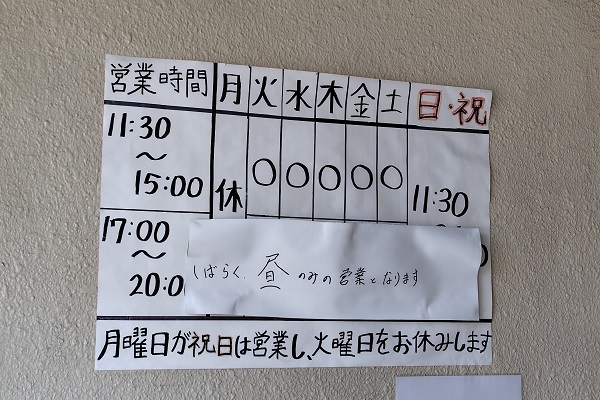 営業時間 月 火 水 木 金 土 日・祝
11:30
〜
15:00 休 ○ ○ ○ ○ ○ 11:30
17:00
〜
20:0
しばらく、昼のみの営業となります
月曜日が祝日は営業し、火曜日をお休みします